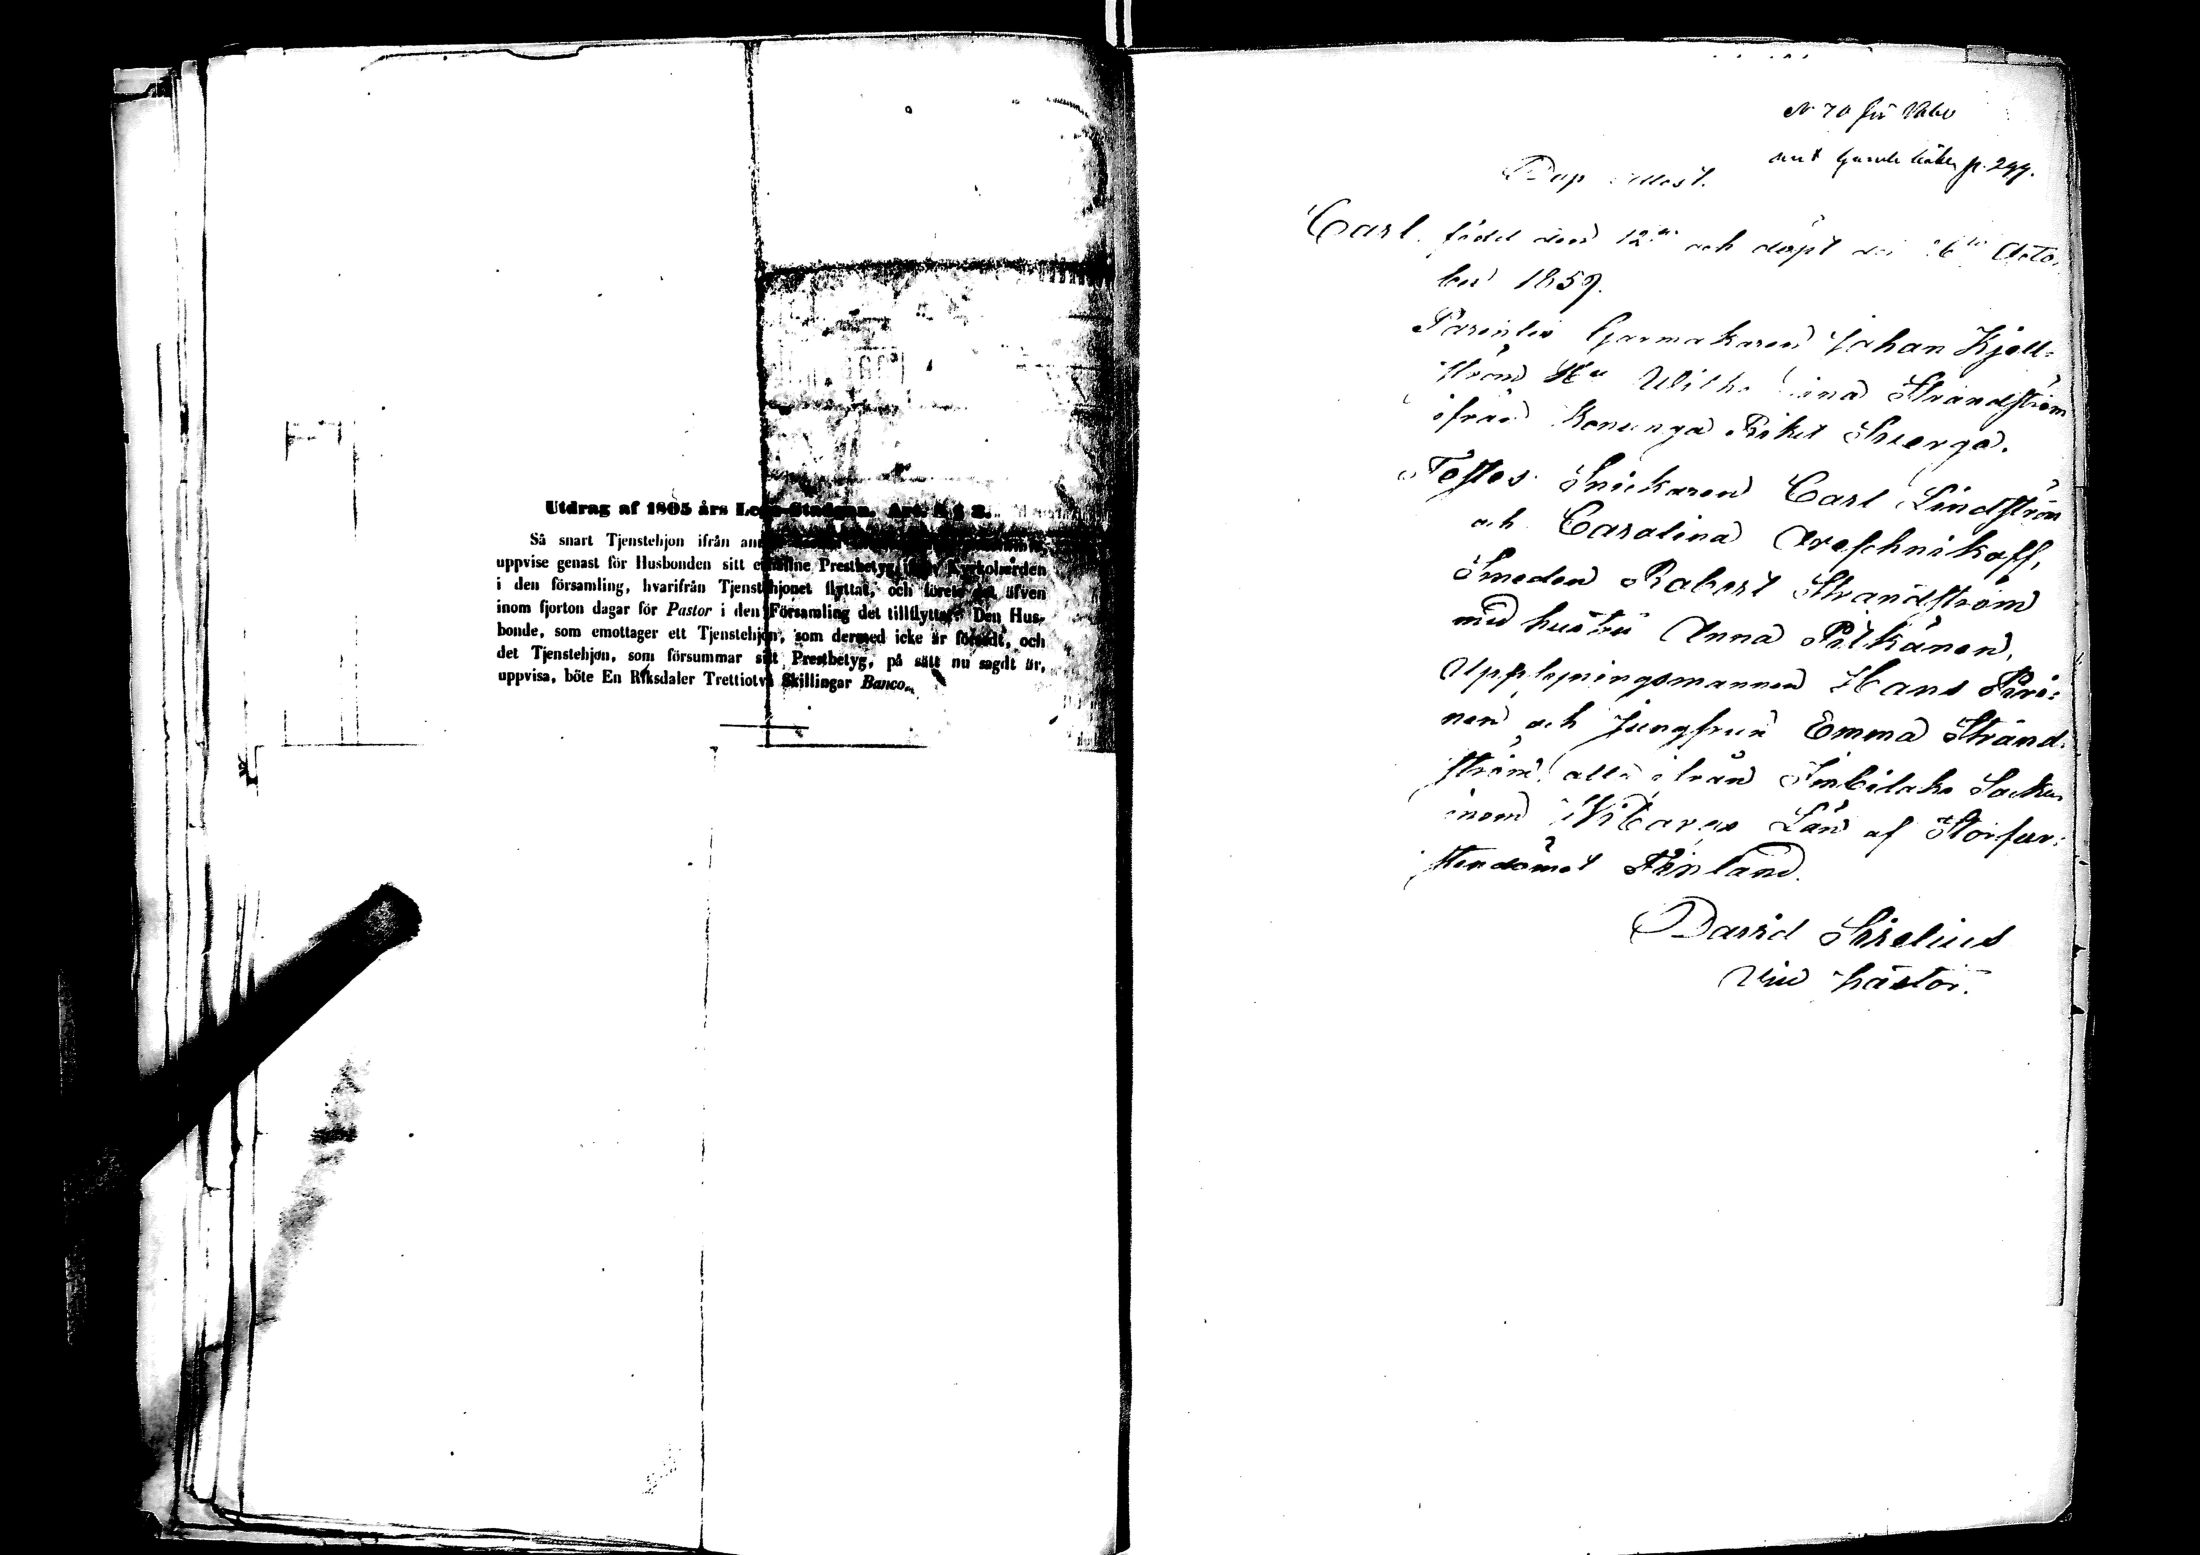 Utdrag af 1805 års Lego-Stadgan. Art.
Så snart Tjenstehjon ifrån
uppvise genast för Husbonden sitt Prestbetyg Kyrkoherden
i den församling, hvarifrån Tjenstehjonet flyttat, och förete det äfven
inom fjorton dagar för Pastor i den Församling det tillflyttat. Den Hus-
bonde, som emottager ett Tjenstehjon, som dermed icke är försedt, och
det Tjenstehjon, som försummar sitt Prestbetyg, på sätt nu sagdt är,
uppvisa, böte En Riksdaler Trettiotvå Skillingar Banco.
N 70 för
p. 299.
Dop attest.
Carl. född den 12 och döpt den 16 Octo
ber 1859.
Parentes Garmakaren Johan Kjell-
ström Hu Wilhelmina Strandström
ifrån Konunga Riket Sverge.
Testes Snickaren Carl Lindström
och Carolina
Smeden Robert Strandström
med hustru Anna Pitkänen,
Upplysningsmannen Hans
nen och Jungfrun Emma Strand-
ström, alla ifrån Imbilaks Socken
inom Wiborgs Län af Storfur-
stendömet Finland.
David Sirelius
Vice pastor.